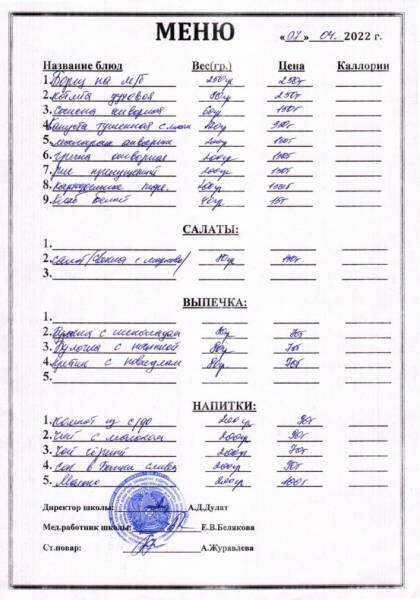 МЕНЮ «07» 04 2022 г.
Название блюд Вес(гр.) Цена Каллории
1. Борщ на м/б 250гр 250т
2. Котлета духовая 80гр 250т
3. Сосиска отварная 60гр 150т
4. Капуста тушенная с мясом 200гр
5. Макароны отварные 200гр
6. Гречка отварная 200гр
7. Рис припущенный 200гр
8. Картофельное пюре. 200гр
9. Хлеб белый 40гр 15т
САЛАТЫ:
1.
2. салат/свекла с морковью/ 80гр
3.
ВЫПЕЧКА:
1.
2. с шоколадом 80гр 70т
3. Булочка с 80гр 70т
4. с повидлом 80гр 70т
5.
НАПИТКИ:
1. Компот из с/фр 200гр 90т
2. Чай с молоком 200гр 90т
3. Чай чёрный 200гр 70т
4. Сок в слива 200гр 90т
5. Молоко 200гр 100т
Директор школы: А.Д.Дулат
Мед.работник школы: Е.В.Белякова
Ст.повар: А.Журавлева